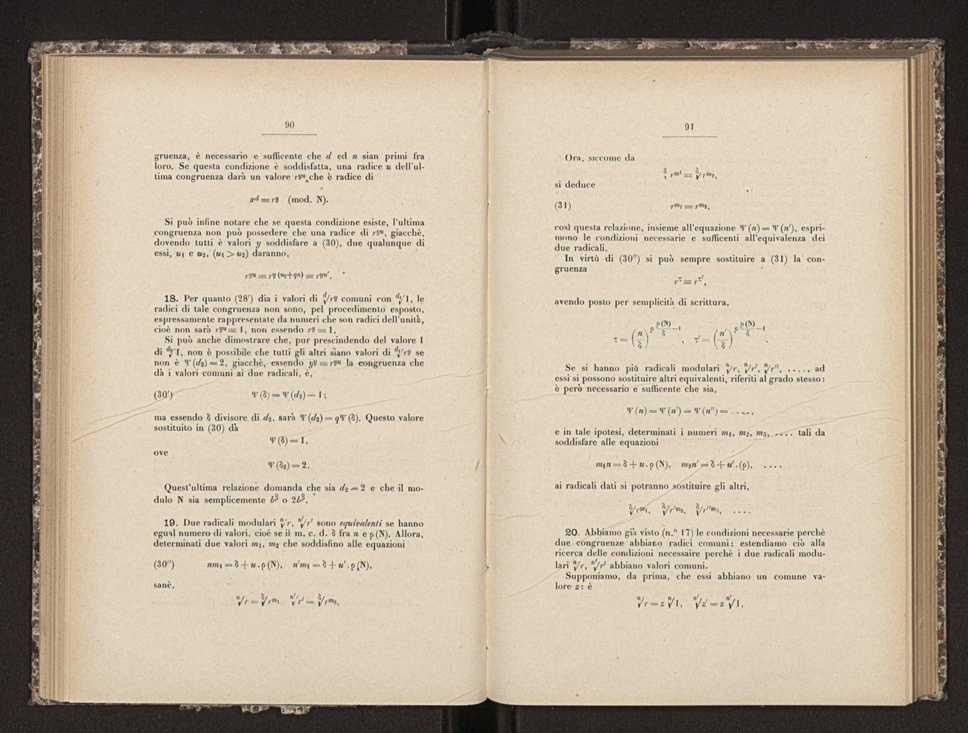 90
gruenza, è necessario e sufficente che d ed n sian primi fra
loro. Se questa condizione è soddisfatta, una radice u dell'ul-
tima congruenza darà un valore rᵍᵘ, che è radice di
yᵈ ≡ rᵍ (mod. N).
Si può infine notare che se questa condizione esiste, l'ultima
congruenza non può possedere che una radice di rᵍᵘ, giacchè,
dovendo tutti è valori y soddisfare a (30), due qualunque di
essi, u₁ e u₂, (u₁ > u₂) daranno,
18. Per quanto (28') dia i valori di ᵈ√rᵍ comuni con ᵈ²√1, le
radici di tale congruenza non sono, pel procedimento esposto,
espressamente rappresentate da numeri che son radici dell'unità,
cioè non sarà rᵍᵘ ≡ 1, non essendo rᵍ ≡ 1.
Si può anche dimostrare che, pur prescindendo del valore 1
di ᵈ²√1, non è possibile che tutti gli altri siano valori di ᵈ√rᵍ se
non è Ψ (d₂) = 2, giacchè, essendo yᵍ ≡ rᵍᵘ la congruenza che
dà i valori comuni ai due radicali, è,
(30') Ψ (δ) = Ψ (d₂) − 1 ;
ma essendo δ divisore di d₂, sarà Ψ (d₂) = qΨ (δ). Questo valore
sostituito in (30) dà
Ψ (δ) = 1,
ove
Ψ (δ₂) = 2.
Quest'ultima relazione domanda che sia d₂ = 2 e che il mo-
dulo N sia semplicemente bᵝ o 2bᵝ.
19. Due radicali modulari ⁿ√r, ⁿ'√r' sono equivalenti se hanno
egual numero di valori, cioè se il m. c. d. δ fra n e φ (N). Allora,
determinati due valori m₁, m₂ che soddisfino alle equazioni
(30'') nm₁ = δ + u . φ (N), n'm₁ = δ + u' . φ (N),
sanè,
ⁿ√r = ᵟ√rᵐ¹ ⁿ'√r' = ᵟ√rᵐ²,
91
Ora, siccome da
ᵟ√rᵐ¹ ≡ ᵟ√rᵐ²,
si deduce
(31) rᵐ¹ ≡ rᵐ²,
così questa relazione, insieme all'equazione Ψ (n) = Ψ (n'), espri-
mono le condizioni necessarie e sufficenti all'equivalenza dei
due radicali.
In virtù di (30'') si può sempre sostituire a (31) la con-
gruenza
r^τ ≡ r^τ',
avendo posto per semplicità di scrittura,
τ = (n/δ)^(φ φ(N)/δ − 1), τ' = (n'/δ)^(φ φ(N)/δ − 1).
Se si hanno più radicali modulari ⁿ√r, ⁿ'√r', ⁿ''√r'', ....., ad
essi si possono sostituire altri equivalenti, riferiti al grado stesso:
è però necessario e sufficente che sia,
Ψ (n) = Ψ (n') = Ψ (n'') = .....,
e in tale ipotesi, determinati i numeri m₁, m₂, m₃, .... tali da
soddisfare alle equazioni
m₁n = δ + u . φ (N), m₂n' = δ + u' . (φ), ....
ai radicali dati si potranno sostituire gli altri,
ᵟ√rᵐ¹, ᵟ√r'ᵐ², ᵟ√r''ᵐ³, ....
20. Abbiamo già visto (n.º 17) le condizioni necessarie perchè
due congruenze abbiano radici comuni: estendiamo ciò alla
ricerca delle condizioni necessaire perchè i due radicali modu-
lari ⁿ√r, ⁿ'√r' abbiano valori comuni.
Supponiamo, da prima, che essi abbiano un comune va-
lore z: è
ⁿ√r = z ⁿ√1, ⁿ'√z' = z ⁿ'√1,